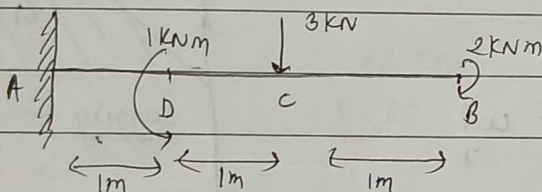 3KN
1KNm
2KNm
A
D
C
B
1m
1m
1m